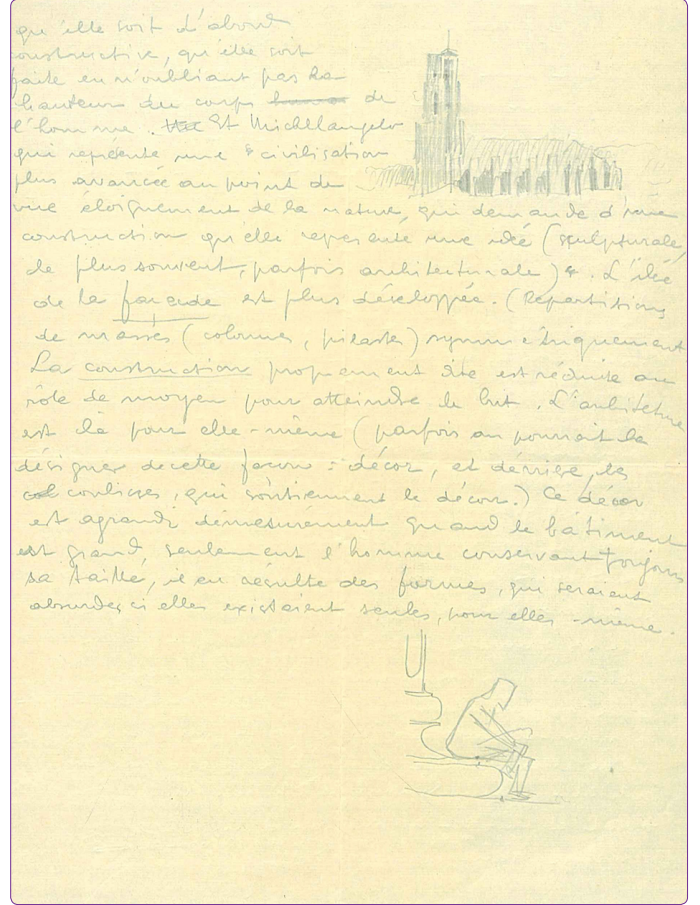 qu'elle soit d'abord
constructive, qu'elle soit
faite en n'oubliant pas la
hauteur du corps de
l'homme. Et Michelangelo
qui représente une civilisation
plus avancée au point de
vue éloignement de la nature, qui demande d'une
construction qu'elle représente une idée (sculpturale,
le plus souvent, parfois architecturale). L'idée
de la façade est plus développée. (Repartitions
de masses (colonnes, pilastes) symmetriquement
La construction proprement dite est réduite au
rôle de moyen pour atteindre le but. L'architecture
est là pour elle-même (parfois on pourrait la
désigner de cette façon : décor, et derrière, les
coulisses, qui soutiennent le décor.) Ce décor
est agrandi démesurement quand le bâtiment
est grand, seulement l'homme conservant toujours
sa taille, il en résulte des formes, qui seraient
absurdes si elles existaient seules, pour elles-même.